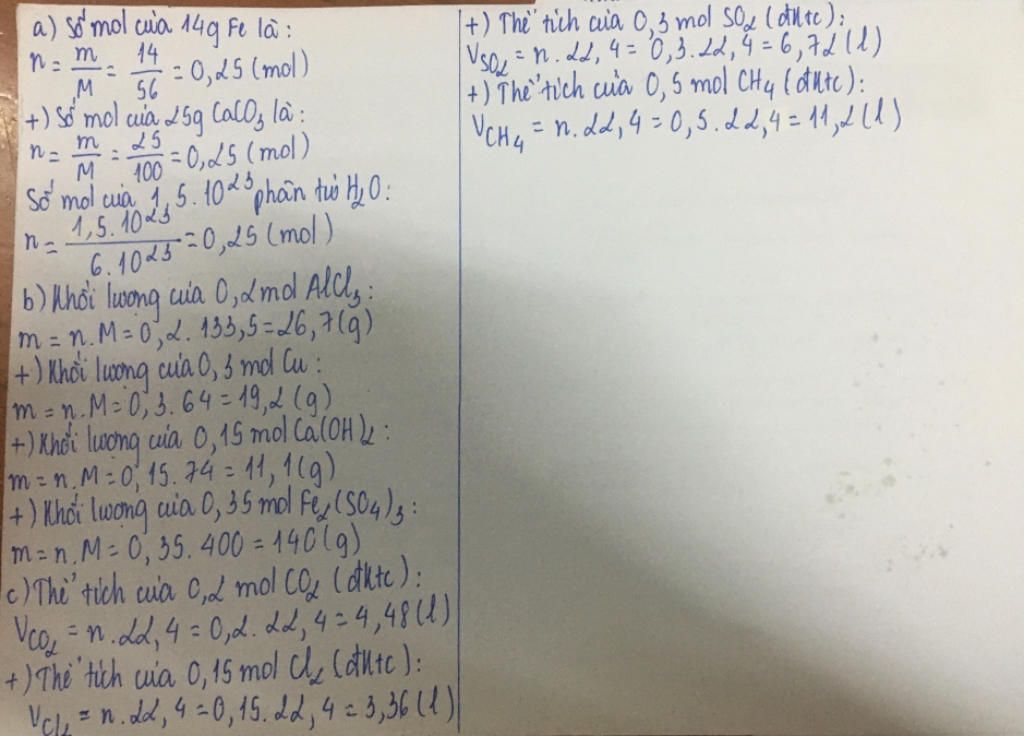 a) Số mol của 14g Fe là:
n = m/M = 14/56 = 0,25 (mol)
+) Số mol của 25g CaCO₃ là:
n = m/M = 25/100 = 0,25 (mol)
Số mol của 1,5.10²³ phân tử H₂O:
n = 1,5.10²³/6.10²³ = 0,25 (mol)
b) Khối lượng của 0,2 mol AlCl₃:
m = n.M = 0,2.133,5 = 26,7(g)
+) Khối lượng của 0,3 mol Cu:
m = n.M = 0,3.64 = 19,2 (g)
+) Khối lượng của 0,15 mol Ca(OH)₂:
m = n.M = 0,15.74 = 11,1(g)
+) Khối lượng của 0,35 mol Fe₂(SO₄)₃:
m = n.M = 0,35.400 = 140(g)
c) Thể tích của 0,2 mol CO₂ (đktc):
V_CO₂ = n.22,4 = 0,2.22,4 = 4,48(l)
+) Thể tích của 0,15 mol Cl₂ (đktc):
V_Cl₂ = n.22,4 = 0,15.22,4 = 3,36(l)
+) Thể tích của 0,3 mol SO₂ (đktc):
V_SO₂ = n.22,4 = 0,3.22,4 = 6,72(l)
+) Thể tích của 0,5 mol CH₄ (đktc):
V_CH₄ = n.22,4 = 0,5.22,4 = 11,2(l)